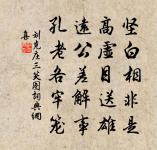 坚白相非是
高虚目送雄
遠公差解事
孔老各牢笼
刘克庄三笑图詞典網